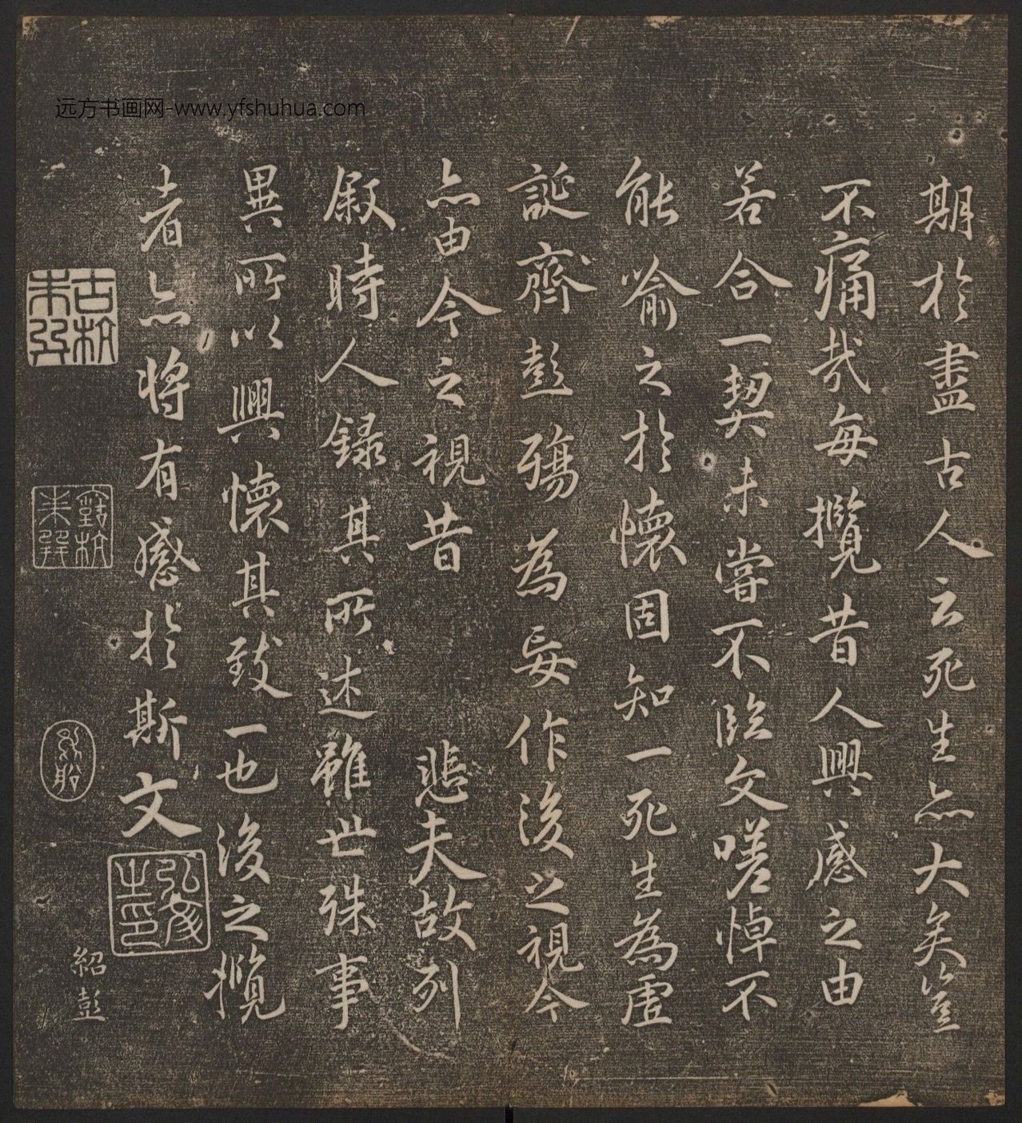 远方书画网-www.yfshuhua.com
期於盡古人云死生亦大矣豈
不痛哉每攬昔人興感之由
若合一契未嘗不臨文嗟悼不
能喻之於懷固知一死生為虛
誕齊彭殤為妄作後之視今
亦由今之視昔 悲夫故列
敘時人錄其所述雖世殊事
異所以興懷其致一也後之攬
者亦將有感於斯文
紹彭